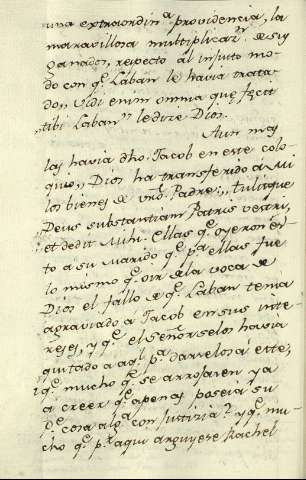 una extraordin.ª providencia, la
maravillosa multiplicaz.n de sus
ganados, respecto al injusto mo-
do con q.e Laban le havia trata-
do,, Vidi enim omnia quę fecit
tibi Laban,, le dixe Dios.
Aun mas
las havia dho. Jacob en este colo-
quio,, Dios ha transferido a mi
los bienes de vro. Padre,, tulitque
Deus substantiam Patris vestri,
et dedit mihi. Ellas q.e oyeron es-
to a su marido q.e p.ª ellas fue
lo mismo q.e oir de la voca de
Dios el fallo de q.e Laban tenia
agraviado à Jacob en sus inte-
reses, y q.e el Señor se los havia
quitado a aq.l p.ª darselos à este,
¿q.e mucho q.e se arrojasen ya
à creer q.e apenas poseia su
P.e cosa alg.ª con justicia? y q.e mu-
cho q.e p.r aqui arguyese Rachel